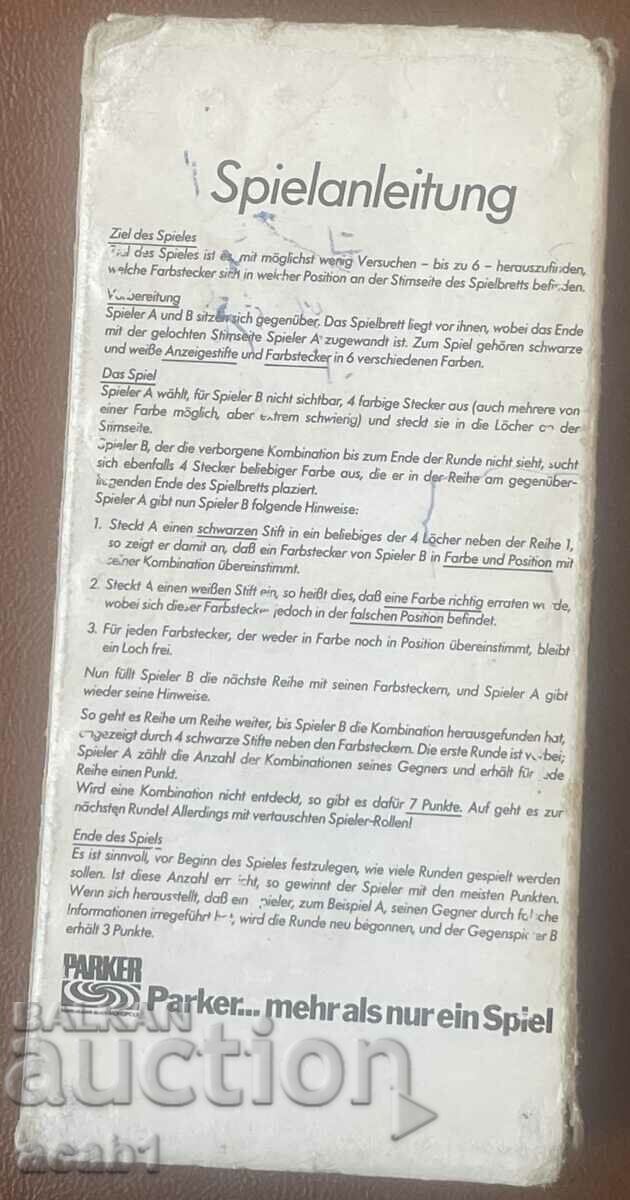 Spielanleitung
Ziel des Spieles
Ziel des Spieles ist es, mit möglichst wenig Versuchen – bis zu 6 – herauszufinden,
welche Farbstecker sich in welcher Position an der Stirnseite des Spielbretts befinden.
Vorbereitung
Spieler A und B sitzen sich gegenüber. Das Spielbrett liegt vor ihnen, wobei das Ende
mit der gelochten Stirnseite Spieler A zugewandt ist. Zum Spiel gehören schwarze
und weiße Anzeigestifte und Farbstecker in 6 verschiedenen Farben.
Das Spiel
Spieler A wählt, für Spieler B nicht sichtbar, 4 farbige Stecker aus (auch mehrere von
einer Farbe möglich, aber extrem schwierig) und steckt sie in die Löcher an der
Stirnseite.
Spieler B, der die verborgene Kombination bis zum Ende der Runde nicht sieht, sucht
sich ebenfalls 4 Stecker beliebiger Farbe aus, die er in der Reihe am gegenüber-
liegenden Ende des Spielbretts plaziert.
Spieler A gibt nun Spieler B folgende Hinweise:
1. Steckt A einen schwarzen Stift in ein beliebiges der 4 Löcher neben der Reihe 1,
so zeigt er damit an, daß ein Farbstecker von Spieler B in Farbe und Position mit
seiner Kombination übereinstimmt.
2. Steckt A einen weißen Stift ein, so heißt dies, daß eine Farbe richtig erraten wurde,
wobei sich dieser Farbstecker jedoch in der falschen Position befindet.
3. Für jeden Farbstecker, der weder in Farbe noch in Position übereinstimmt, bleibt
ein Loch frei.
Nun füllt Spieler B die nächste Reihe mit seinen Farbsteckern, und Spieler A gibt
wieder seine Hinweise.
So geht es Reihe um Reihe weiter, bis Spieler B die Kombination herausgefunden hat,
angezeigt durch 4 schwarze Stifte neben den Farbsteckern. Die erste Runde ist vorbei;
Spieler A zählt die Anzahl der Kombinationen seines Gegners und erhält für jede
Reihe einen Punkt.
Wird eine Kombination nicht entdeckt, so gibt es dafür 7 Punkte. Auf geht es zur
nächsten Runde! Allerdings mit vertauschten Spieler-Rollen!
Ende des Spiels
Es ist sinnvoll, vor Beginn des Spieles festzulegen, wie viele Runden gespielt werden
sollen. Ist diese Anzahl erreicht, so gewinnt der Spieler mit den meisten Punkten.
Wenn sich herausstellt, daß ein Spieler, zum Beispiel A, seinen Gegner durch falsche
Informationen irregeführt hat, wird die Runde neu begonnen, und der Gegenspieler B
erhält 3 Punkte.
PARKER
Parker... mehr als nur ein Spiel
BALKAN
auction
acab1